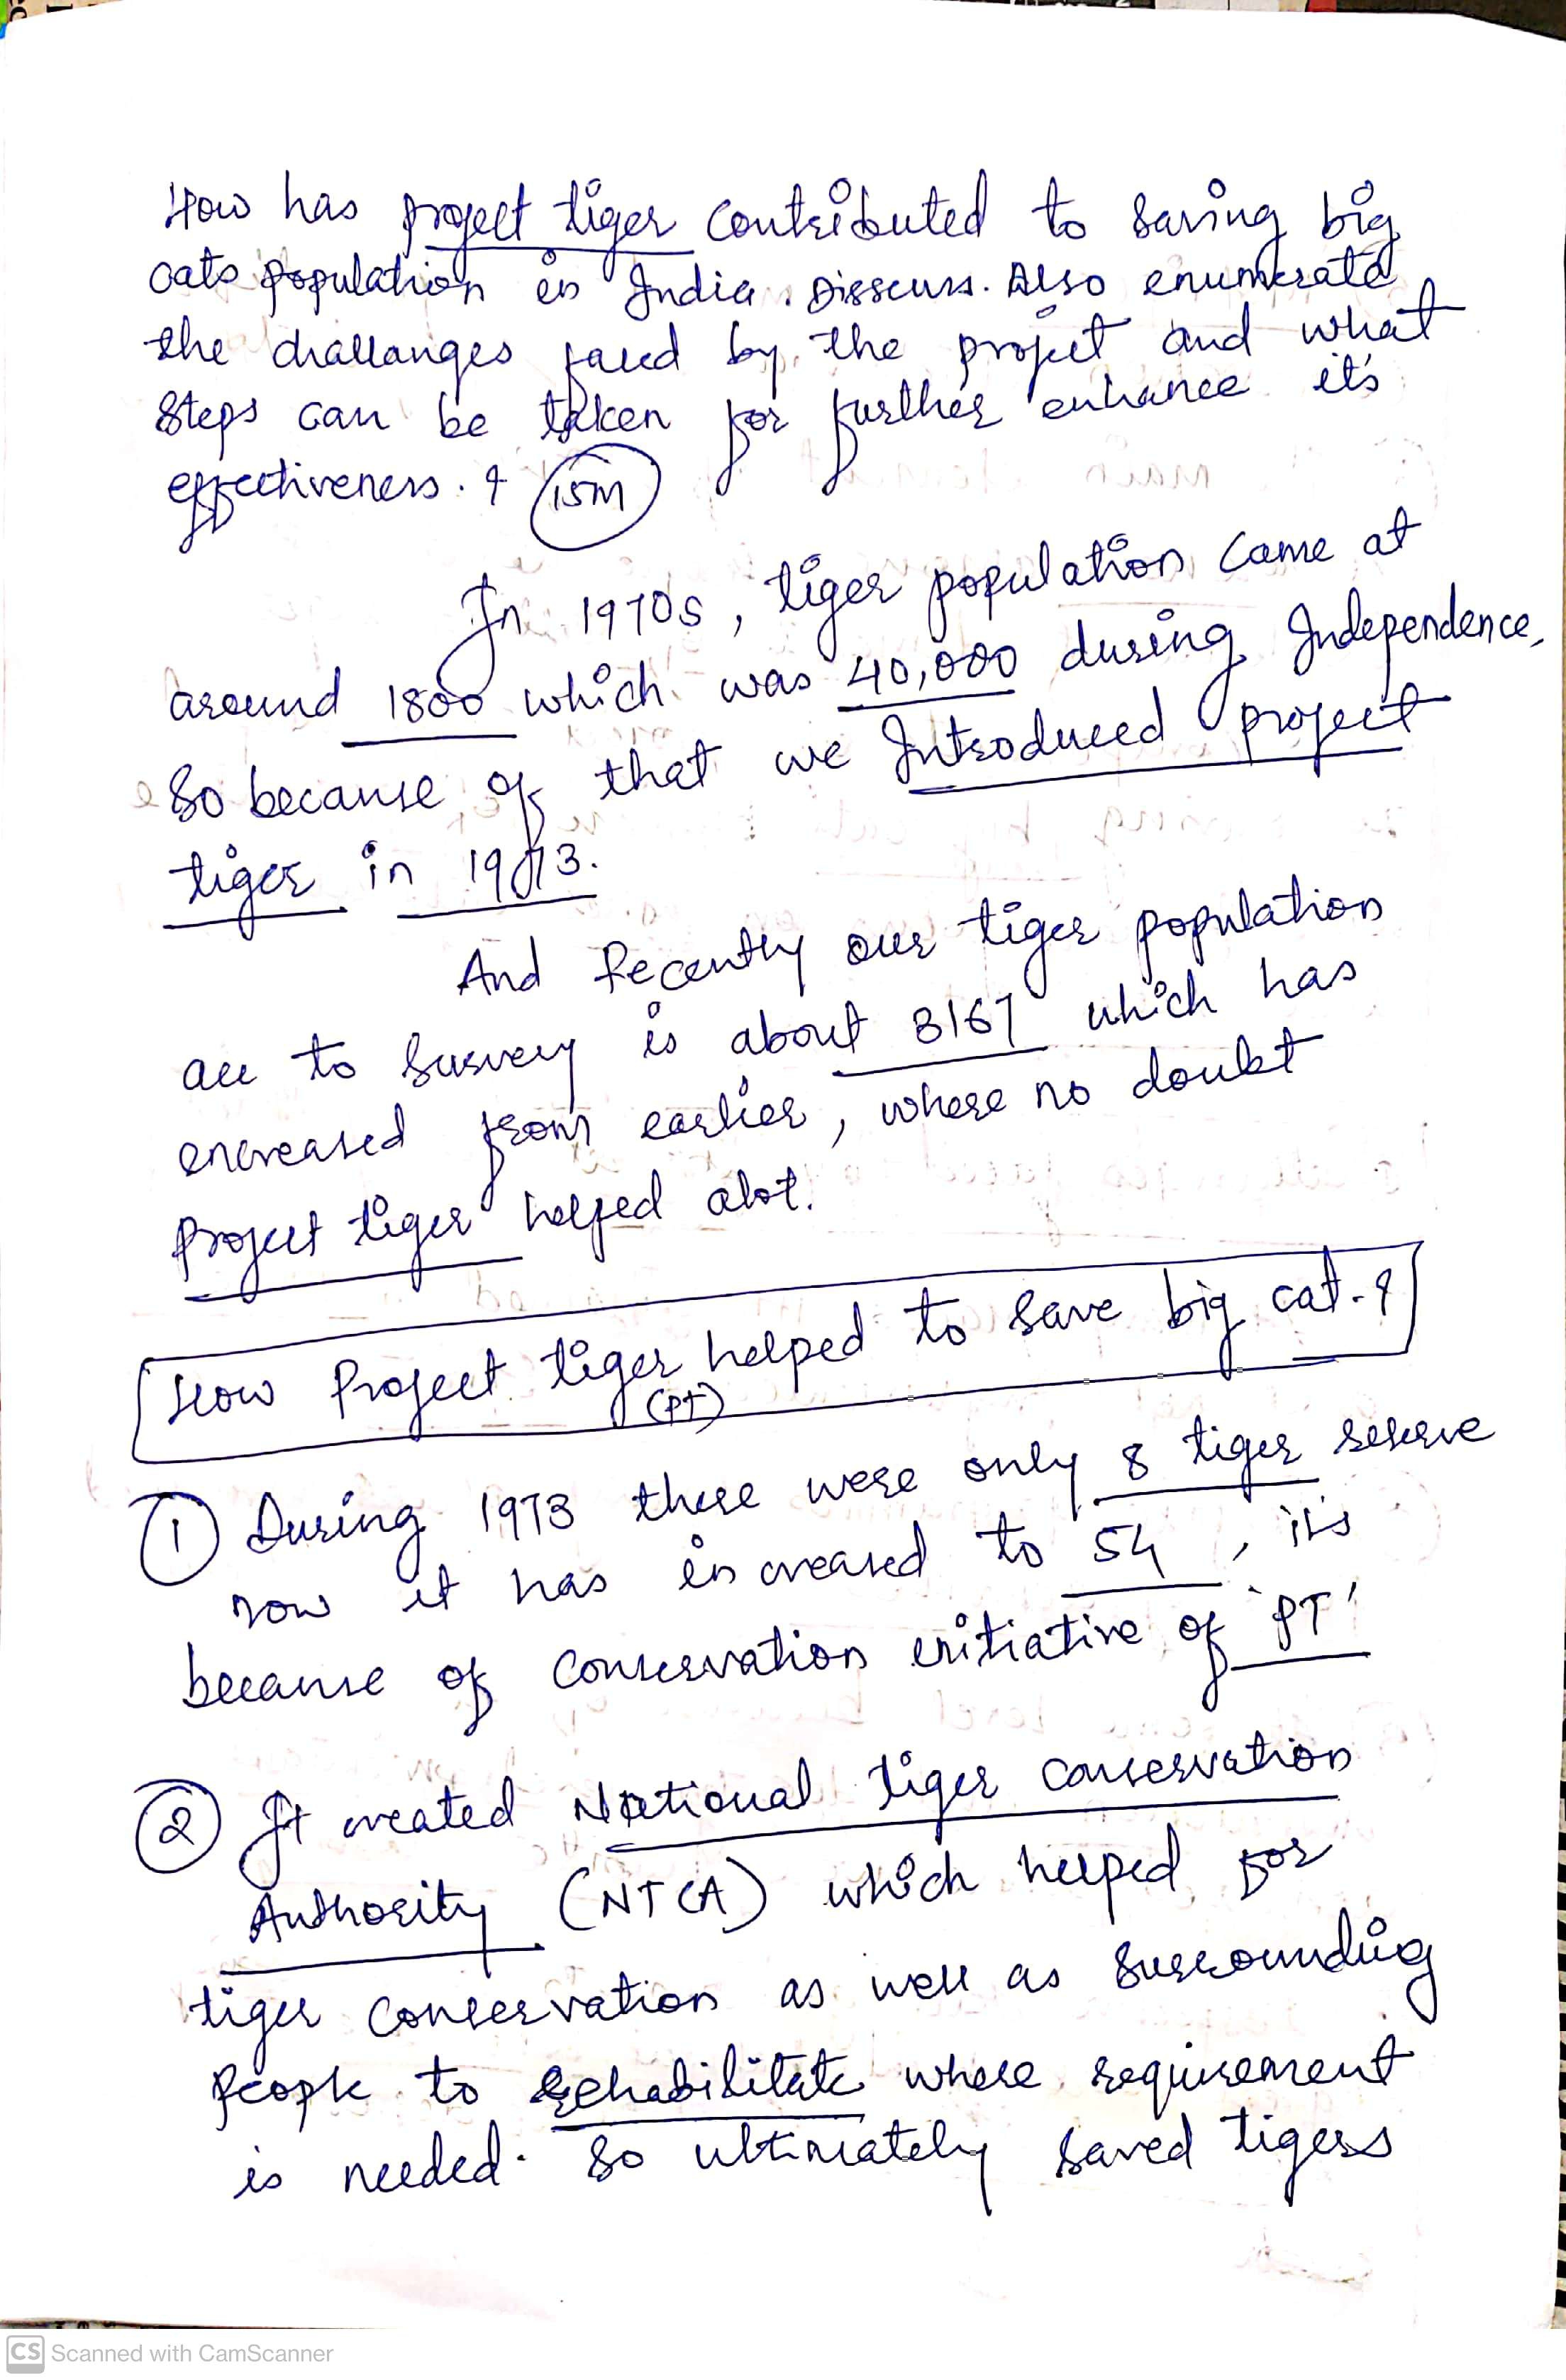 How has project tiger contributed to saving big
cats population in India. Disscuss. Also enumerate
the challanges faced by the project and what
steps can be taken for further enhance it's
effectiveness. ? 15m
In 1970s, tiger population came at
around 1800 which was 40,000 during Independence,
So because of that we Introduced project
tiger in 1973.
And Recently our tiger population
acc to survey is about 3167 which has
increased from earlier, where no doubt
Project tiger helped alot.
How Project tiger helped to save big cat.?
(PT)
① During 1973 there were only 8 tiger reserve
now it has increased to 54, it's
because of conservation initiative of 'PT'
② It created National tiger conservation
Authority (NTCA) which helped for
tiger conservation as well as surrounding
people to rehabilitate where requirement
is needed. So ultimately saved tigers
CS Scanned with CamScanner